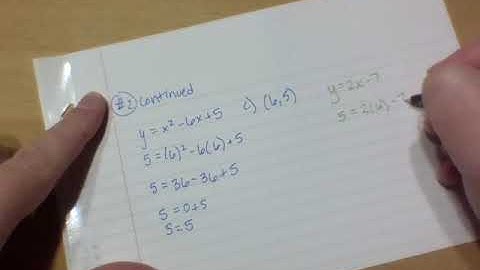 #2 continued
y = x² - 6x + 5
5 = (6)² - 6(6) + 5
5 = 36 - 36 + 5
5 = 0 + 5
5 = 5
c) (6,5)
y = 2x - 7
5 = 2(6) - 7